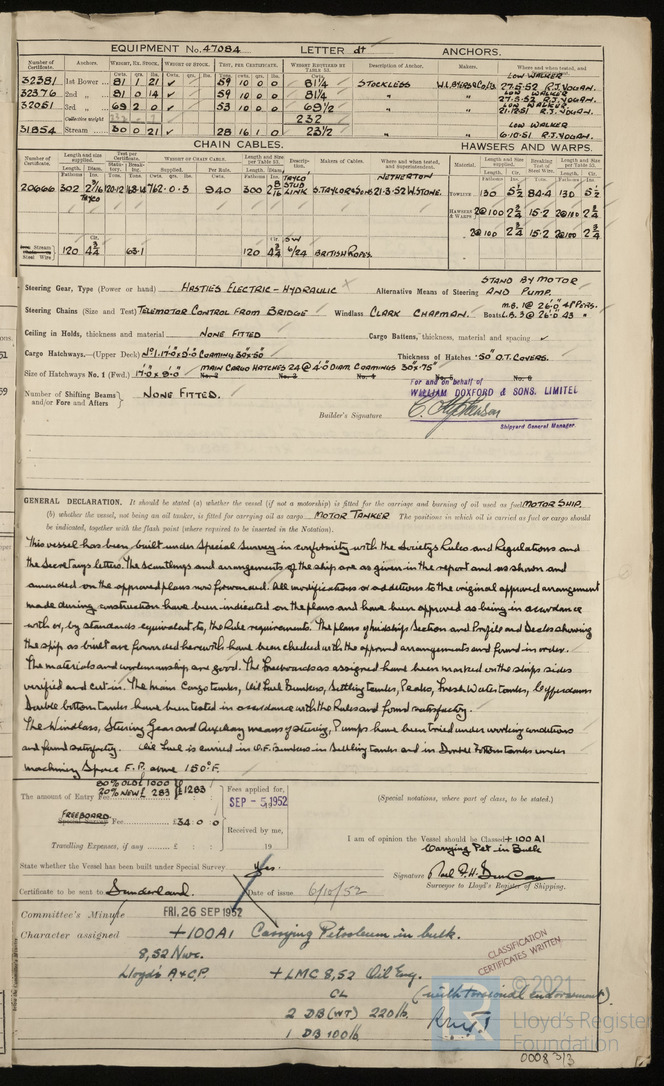 EQUIPMENT No. 47084 LETTER dt ANCHORS.
Number of Certificate. Anchors. WEIGHT, EX. STOCK. WEIGHT OF STOCK. TEST, PER CERTIFICATE. WEIGHT REQUIRED BY TABLE 53. Description of Anchor. Makers. Where and when tested, and Superintendent.
Cwts. qrs. lbs. Cwts. qrs. lbs. Tons. cwts. qrs. lbs. Cwts.
32381 1st Bower 81 1 21 ✓ 59 10 0 0 81¼ STOCKLESS W.L. BYERS & Co. Ltd. LOW WALKER 27.5.52 R.J. VOGAN.
32376 2nd „ 81 0 14 ✓ 59 10 0 0 81¼ „ „ LOW WALKER 27.5.52 R.J. VOGAN.
32051 3rd „ 69 2 0 ✓ 53 10 0 0 69½ „ „ LOW WALKER 21.12.51 R.J. VOGAN.
Collective weight 232
31854 Stream 30 0 21 ✓ 28 16 1 0 23½ „ „ LOW WALKER 6.10.51 R.J. VOGAN.
CHAIN CABLES. HAWSERS AND WARPS.
Number of Certificate. Length and size supplied. Test per Certificate. WEIGHT OF CHAIN CABLE. Length and size per Table 53. Description. Makers of Cables. Where and when tested, and Superintendent. Material. Length and Size supplied. Breaking Test of Steel Wire. Length and Size per Table 53.
Fathoms Diam. Statutory. Breaking. Supplied. Per Rule. Fathoms Diam. Fathoms Cir. Tons. Fathoms Cir.
20666 302 2 3/16 TAYCO 762.0.3 940 300 TAYCO STUD LINK S. TAYLOR & SONS NETHERTON 21.3.52 W. STONE.
TOWLINE 130 5½ 84.4 130 5½
HAWSERS & WARPS 2@100 2¾ 15.2 2@100 2¾
„ 2@100 2¾ 15.2 2@100 2¾
Stream Steel Wire 120 4¾ 63.1 120 4¾ 6/24 BRITISH ROPES
Steering Gear, Type (Power or hand) HASTIES ELECTRIC-HYDRAULIC Alternative Means of Steering STAND BY MOTOR AND PUMP.
Steering Chains (Size and Test) TELEMOTOR CONTROL FROM BRIDGE Windlass CLARK CHAPMAN. Boats M.B. 1@ 26'0" 48 PERS. L.B. 3@ 26'0" 43 „
Ceiling in Holds, thickness and material NONE FITTED Cargo Battens, thickness, material and spacing ✓
Cargo Hatchways.—(Upper Deck) No. 1. 17'0" x 9'0" COAMING 30 x .50 Thickness of Hatches .50" O.T. COVERS.
Size of Hatchways No. 1 (Fwd.) 17'0" x 9'0" No. 2 MAIN CARGO HATCHES 24 @ 4'0" DIAM COAMINGS 30 x .75" No. 3 No. 4 No. 5 No. 6
Number of Shifting Beams and/or Fore and Afters NONE FITTED.
For and on behalf of
WILLIAM DOXFORD & SONS. LIMITED
Builder's Signature
Shipyard General Manager.
GENERAL DECLARATION. It should be stated (a) whether the vessel (if not a motorship) is fitted for the carriage and burning of oil used as fuel MOTOR SHIP.
(b) whether the vessel, not being an oil tanker, is fitted for carrying oil as cargo MOTOR TANKER The positions in which oil is carried as fuel or cargo should
be indicated, together with the flash point (where required to be inserted in the Notation).
This vessel has been built under Special Survey in conformity with the Society's Rules and Regulations and
the Secretary's letters. The scantlings and arrangements of the ship are as given in the report and as shown and
amended on the approved plans now forwarded. All modifications or additions to the original approved arrangement
made during construction have been indicated on the plans and have been approved as being in accordance
with or, by standards equivalent to, the Rule requirements. The plans of Midship Section and Profile and Decks showing
the ship as built are forwarded herewith have been checked with the approved arrangements and found in order.
The materials and workmanship are good. The Freeboards as assigned have been marked on the ship's sides
verified and cut in. The main Cargo tanks, Oil Fuel Bunkers, Settling tanks, Peaks, Fresh Water tanks, Cofferdams
Double bottom tanks have been tested in accordance with the Rules and found satisfactory.
The Windlass, Steering Gear and Auxiliary means of steering, Pumps have been tried under working conditions
and found satisfactory. Oil Fuel is carried in O.F. Bunkers in Settling tanks and in Double Bottom tanks under
machinery Space F.P. above 150°F.
80% OLD £1000
20% NEW £ 283
The amount of Entry Fee £1283 Fees applied for, SEP - 5 1952
FREEBOARD
Special Survey Fee £34 : 0 : 0 Received by me,
Travelling Expenses, if any £ : : 19
(Special notations, where part of class, to be stated.)
I am of opinion the Vessel should be Classed +100A1
Carrying Pet in Bulk
State whether the Vessel has been built under Special Survey Yes.
Signature
Surveyor to Lloyd's Register of Shipping.
Certificate to be sent to Sunderland. Date of issue 6/10/52
Committee's Minute FRI. 26 SEP 1952
Character assigned +100A1 Carrying Petroleum in bulk.
8,52 Nwc.
Lloyd's A & C.P. +LMC 8,52 Oil Eng.
CL (with torsional endorsement).
2 DB (WT) 220 lb.
1 DB 100 lb.
CLASSIFICATION
CERTIFICATES WRITTEN
© 2021
Lloyd's Register
Foundation
0008 3/3